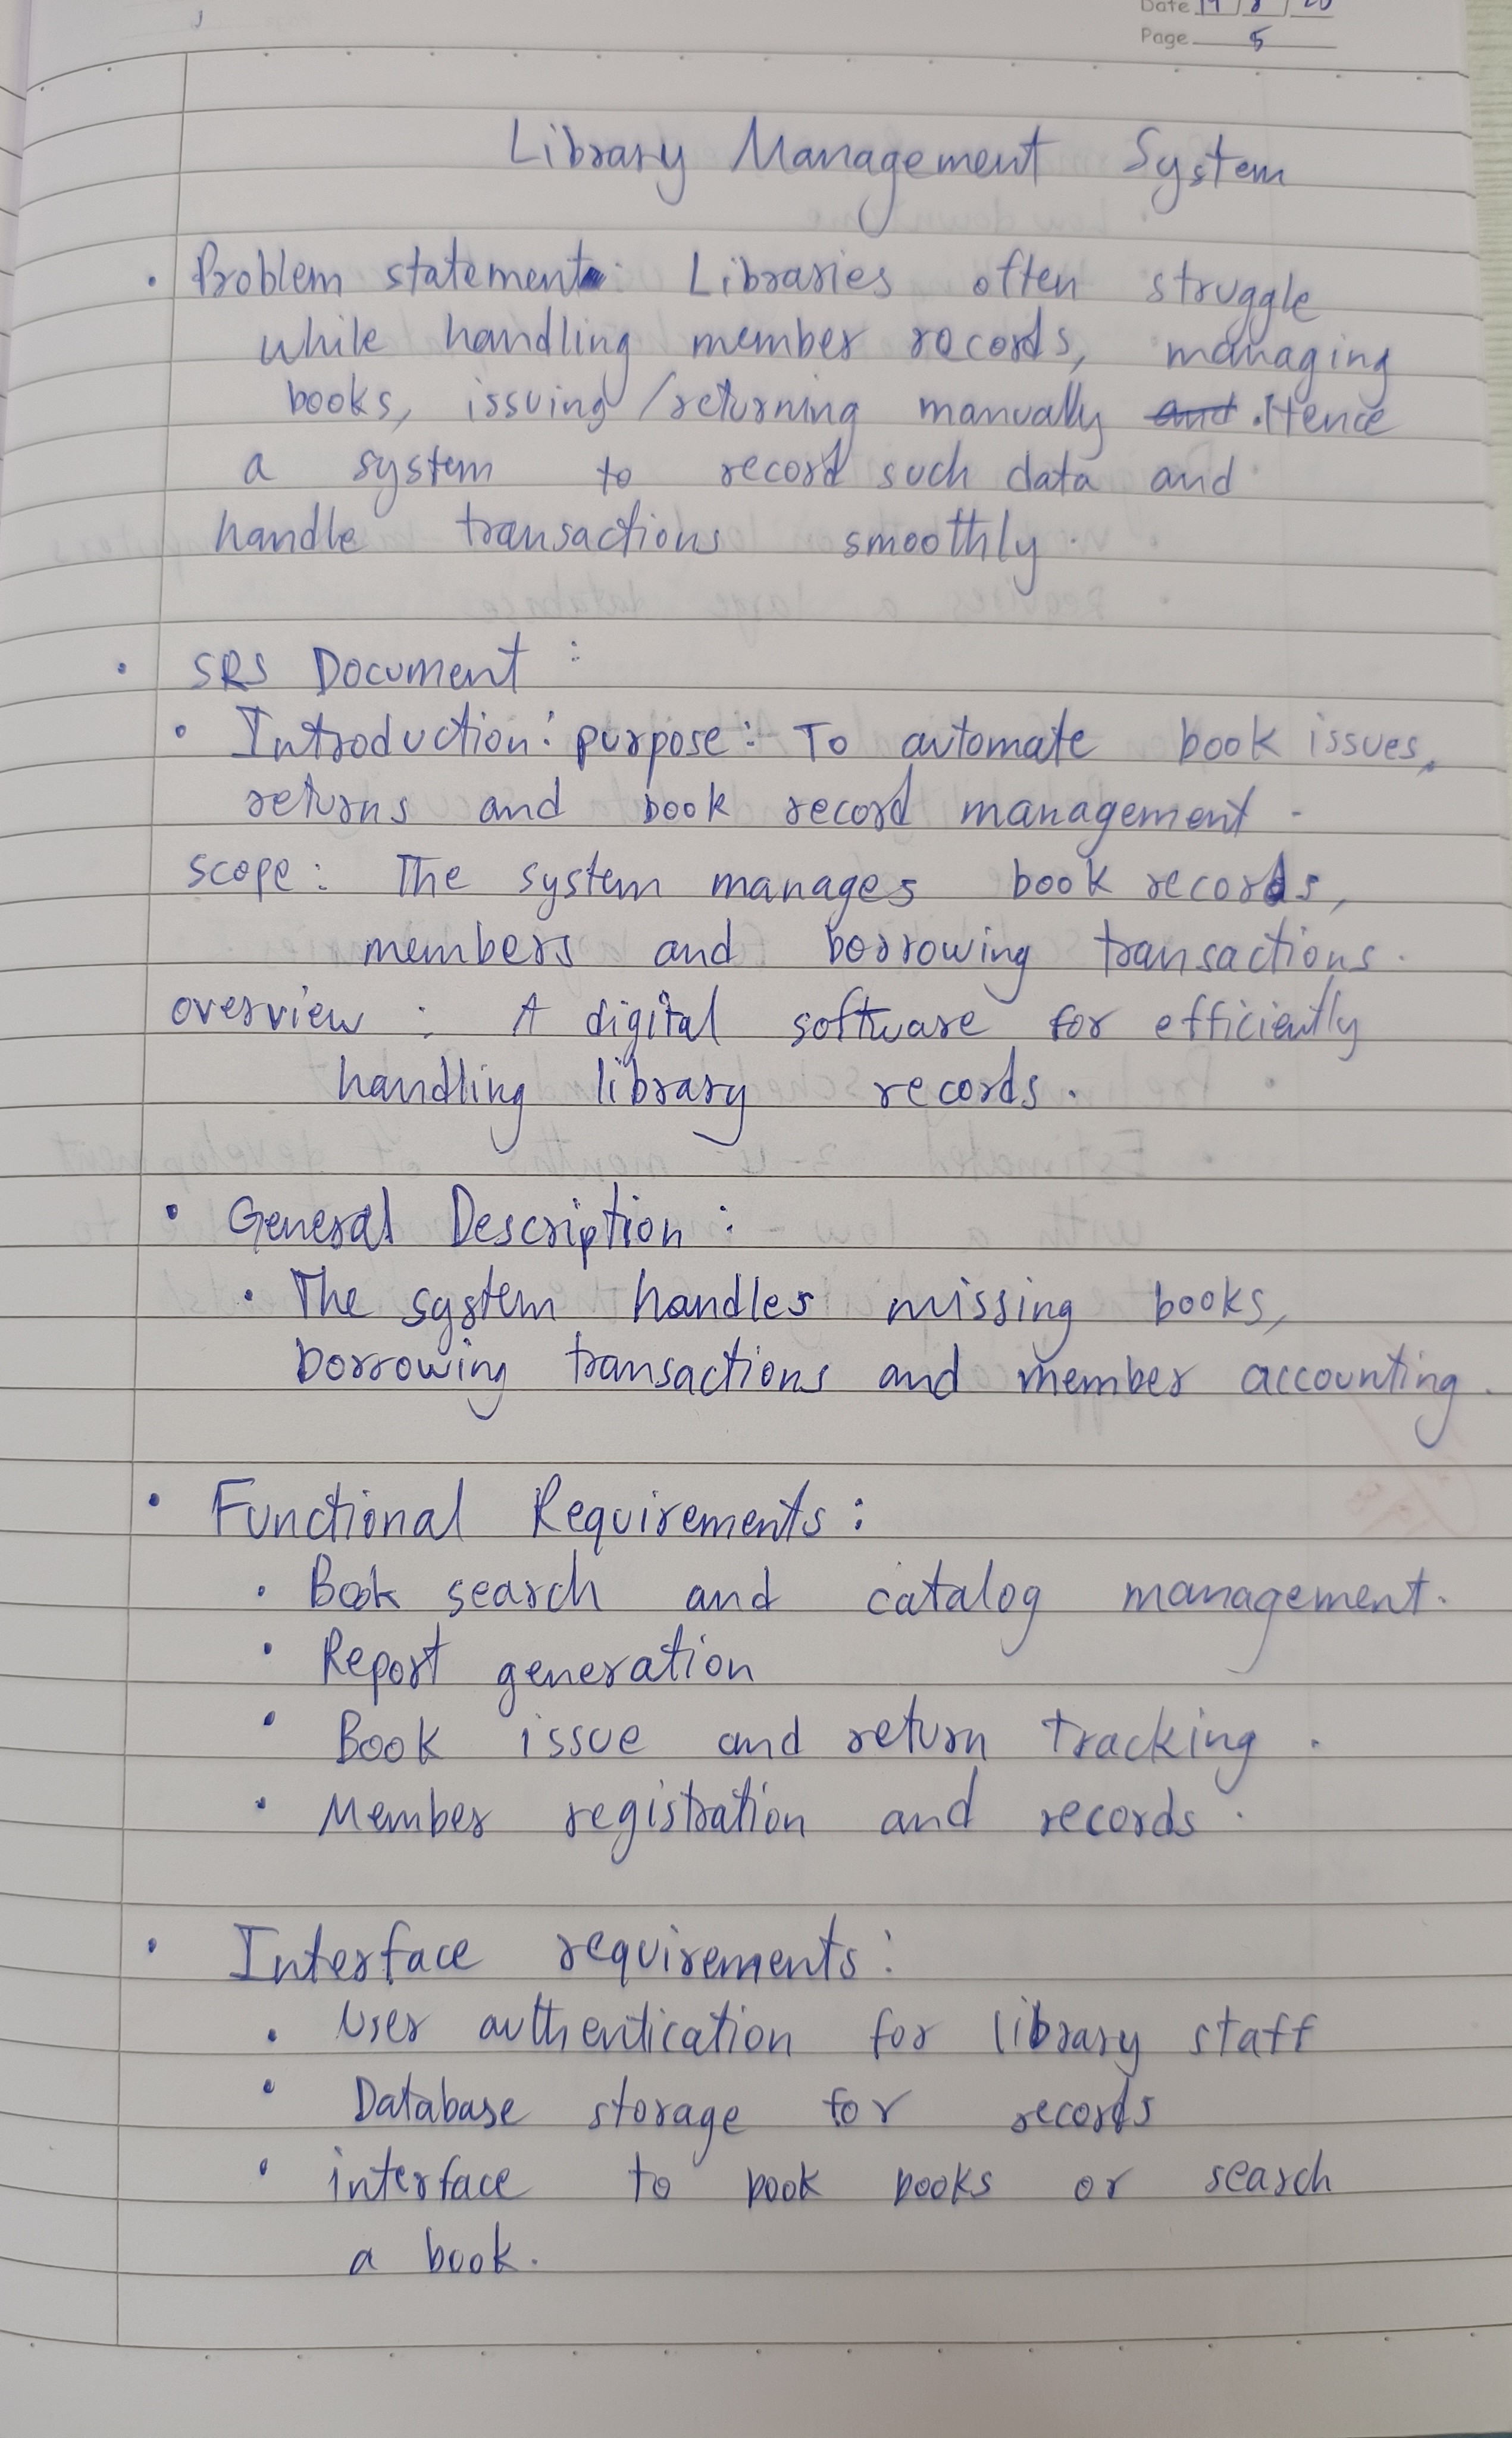 Date
Page 5
Library Management System
• Problem statement: Libraries often struggle
while handling member records, managing
books, issuing/returning manually and . Hence
a system to record such data and
handle transactions smoothly.
• SRS Document :
• Introduction: purpose: To automate book issues,
returns and book record management.
scope: The system manages book records,
members and borrowing transactions.
overview : A digital software for efficiently
handling library records.
• General Description :
• The system handles missing books,
borrowing transactions and member accounting.
• Functional Requirements :
• Book search and catalog management.
• Report generation
• Book issue and return tracking.
• Member registration and records.
• Interface requirements:
• User authentication for library staff
• Database storage for records
• interface to book books or search
a book.